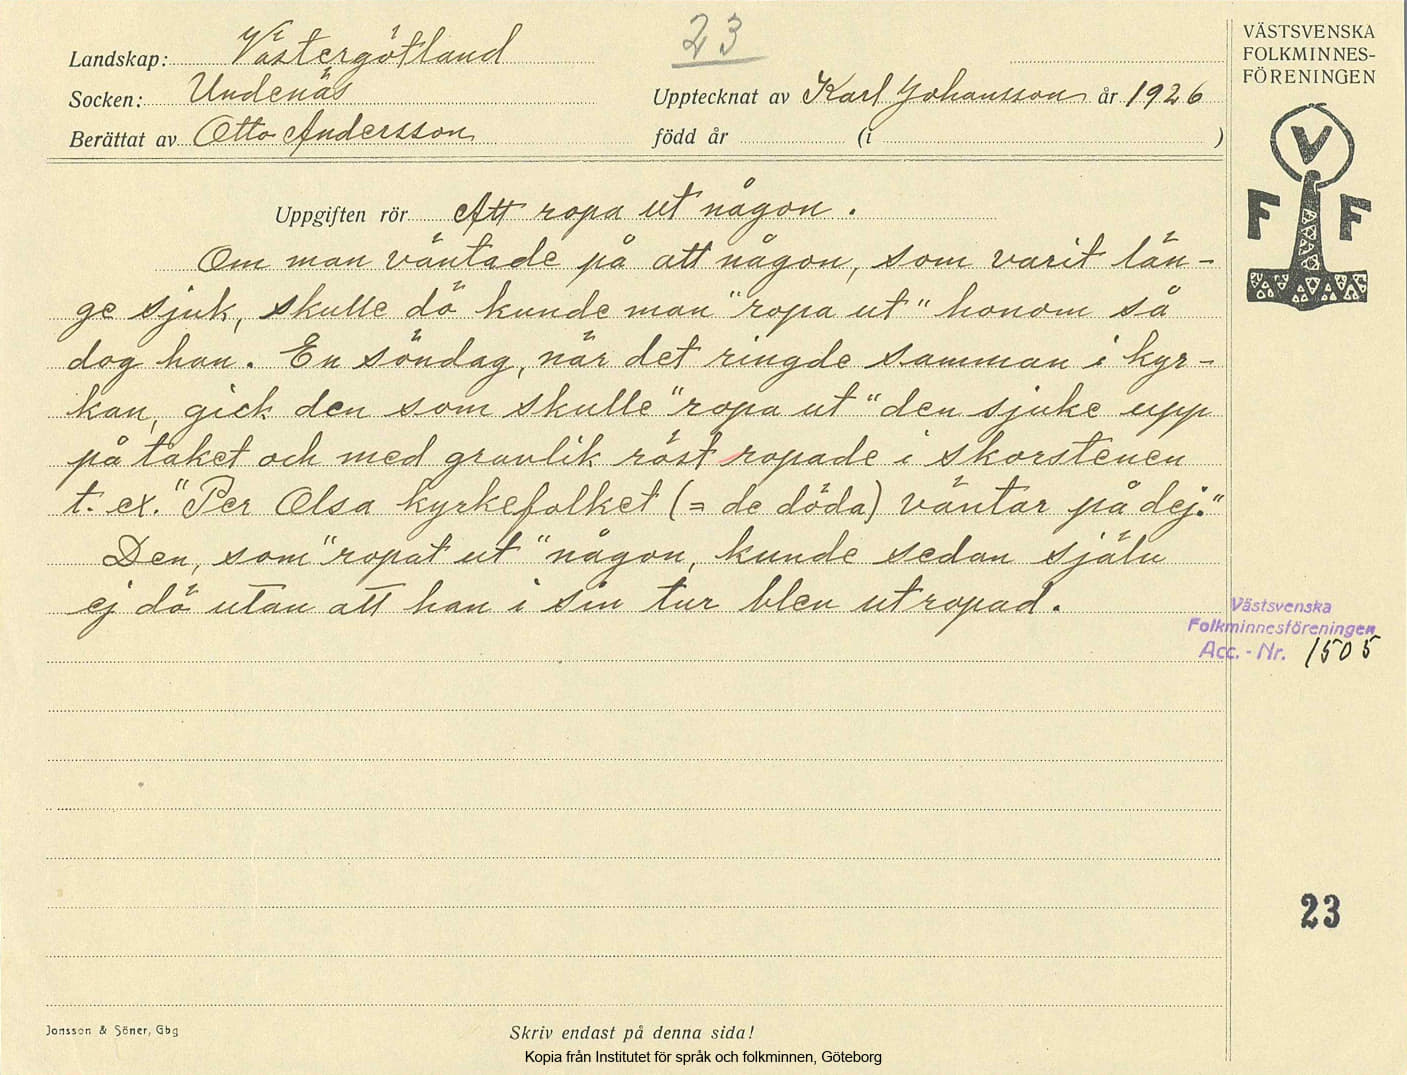 23
Landskap: Västergötland
Socken: Undenäs
Upptecknat av Karl Johansson år 1926
Berättat av Otto Andersson
född år (i )
VÄSTSVENSKA
FOLKMINNES-
FÖRENINGEN
V
F F
Uppgiften rör Att ropa ut någon.
Om man väntade på att någon, som varit län-
ge sjuk, skulle dö kunde man "ropa ut" honom så
dog han. En söndag, när det ringde samman i kyr-
kan, gick den som skulle "ropa ut" den sjuke upp
på taket och med gravlik röst ropade i skorstenen
t. ex. "Per Olsa kyrkefolket (= de döda) väntar på dej."
Den, som "ropat ut" någon, kunde sedan själv
ej dö utan att han i sin tur blev utropad.
Västsvenska
Folkminnesföreningen
Acc.-Nr. 1505
23
Jonsson & Söner, Gbg
Skriv endast på denna sida!
Kopia från Institutet för språk och folkminnen, Göteborg